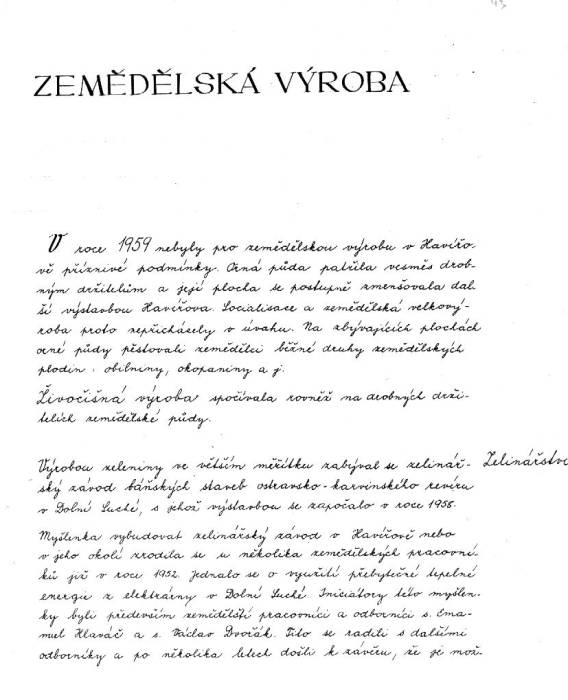 43
ZEMĚDĚLSKÁ VÝROBA
V roce 1959 nebyly pro zemědělskou výrobu v Havířo-
vě příznivé podmínky. Orná půda patřila vesměs drob-
ným držitelům a její plocha se postupně zmenšovala dal-
ší výstavbou Havířova. Socialisace a zemědělská velkový-
roba proto nepřicházely v úvahu. Na zbývajících plochách
orné půdy pěstovali zemědělci běžné druhy zemědělských
plodin: obilniny, okopaniny a j.
Živočišná výroba spočívala rovněž na drobných drži-
telích zemědělské půdy.
Výrobou zeleniny ve větším měřítku zabýval se zelinář-
Zelinářství
ský závod báňských staveb ostravsko-karvinského revíru
v Dolní Suché, s jehož výstavbou se započalo v roce 1958.
Myšlenka vybudovat zelinářský závod v Havířově nebo
v jeho okolí zrodila se u několika zemědělských pracovní-
ků již v roce 1952. Jednalo se o využití přebytečné tepelné
energie z elektrárny v Dolní Suché. Iniciátory této myšlen-
ky byli především zemědělští pracovníci a odborníci s. Ema-
nuel Hlaváč a s. Václav Dvořák. Tito se radili s dalšími
odborníky a po několika letech došli k závěru, že je mož-